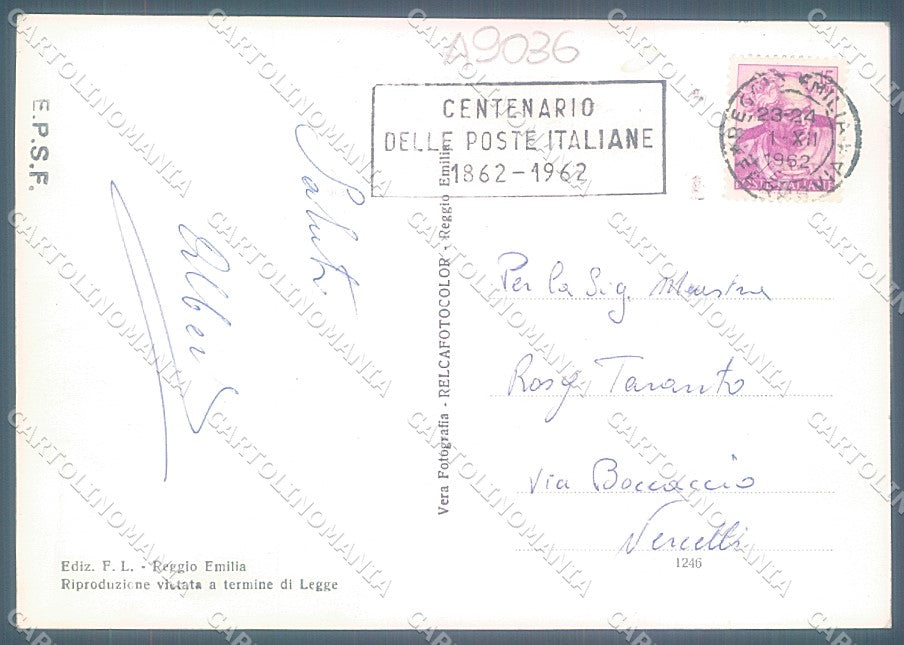 A9036
E.P.S.F.
CENTENARIO
DELLE POSTE ITALIANE
1862-1962
REGGIO EMILIA
23-24
1-XII
1962
15
POSTE ITALIANE
Saluti
Vera Fotografia - RELCAFOTOCOLOR - Reggio Emilia
Per la Sig.
Rosa Taranto
Via Boccaccio
Vercelli
1246
Ediz. F. L. - Reggio Emilia
Riproduzione vietata a termine di Legge
CARTOLINOMANIA